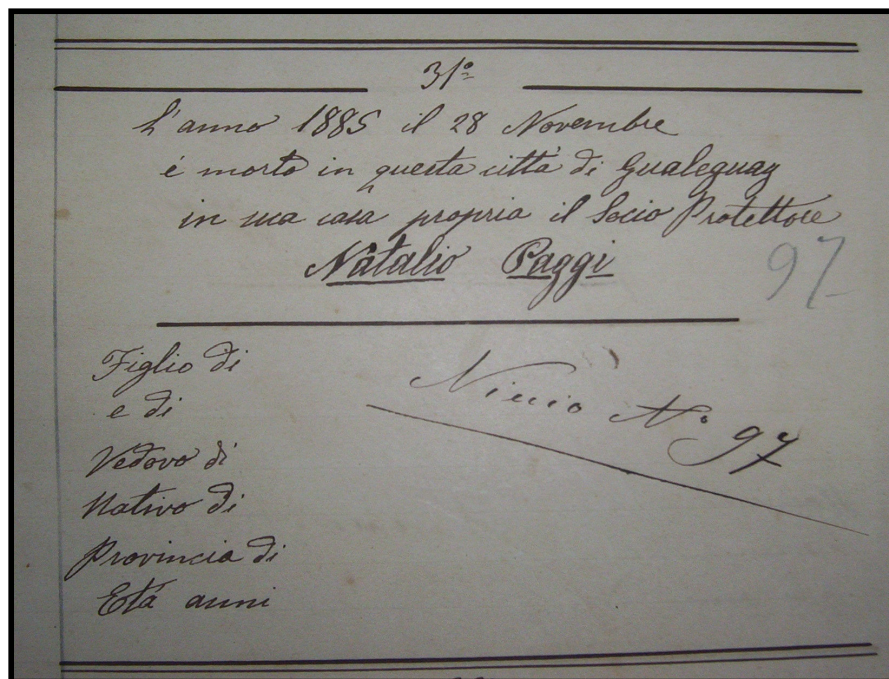 31º
L'anno 1885 il 28 Novembre
é morto in questa città di Gualeguay
in sua casa propria il Socio Protettore
Natalio Paggi
97
Figlio di
e di
Nicio Nº 97
Vedovo di
Nativo di
Provincia di
Etá anni